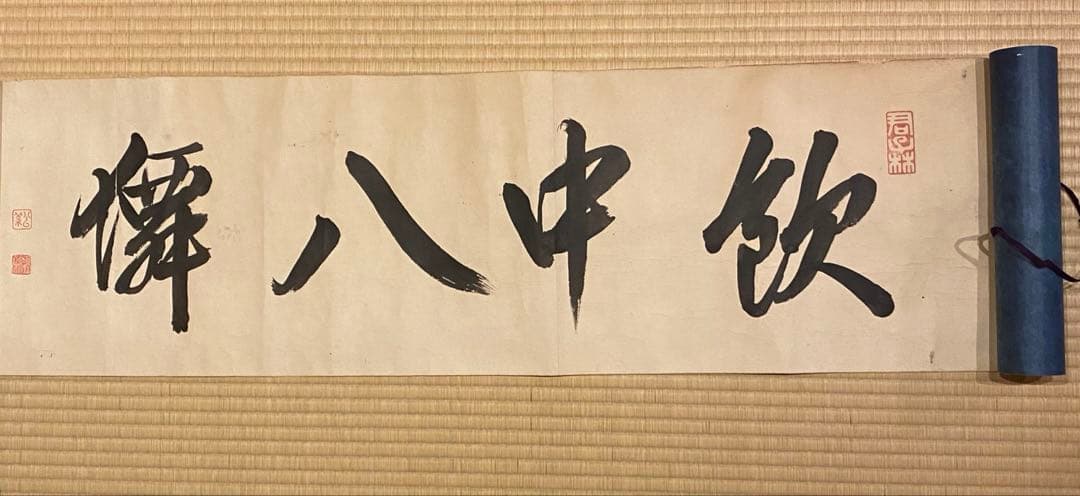 飲中八僊